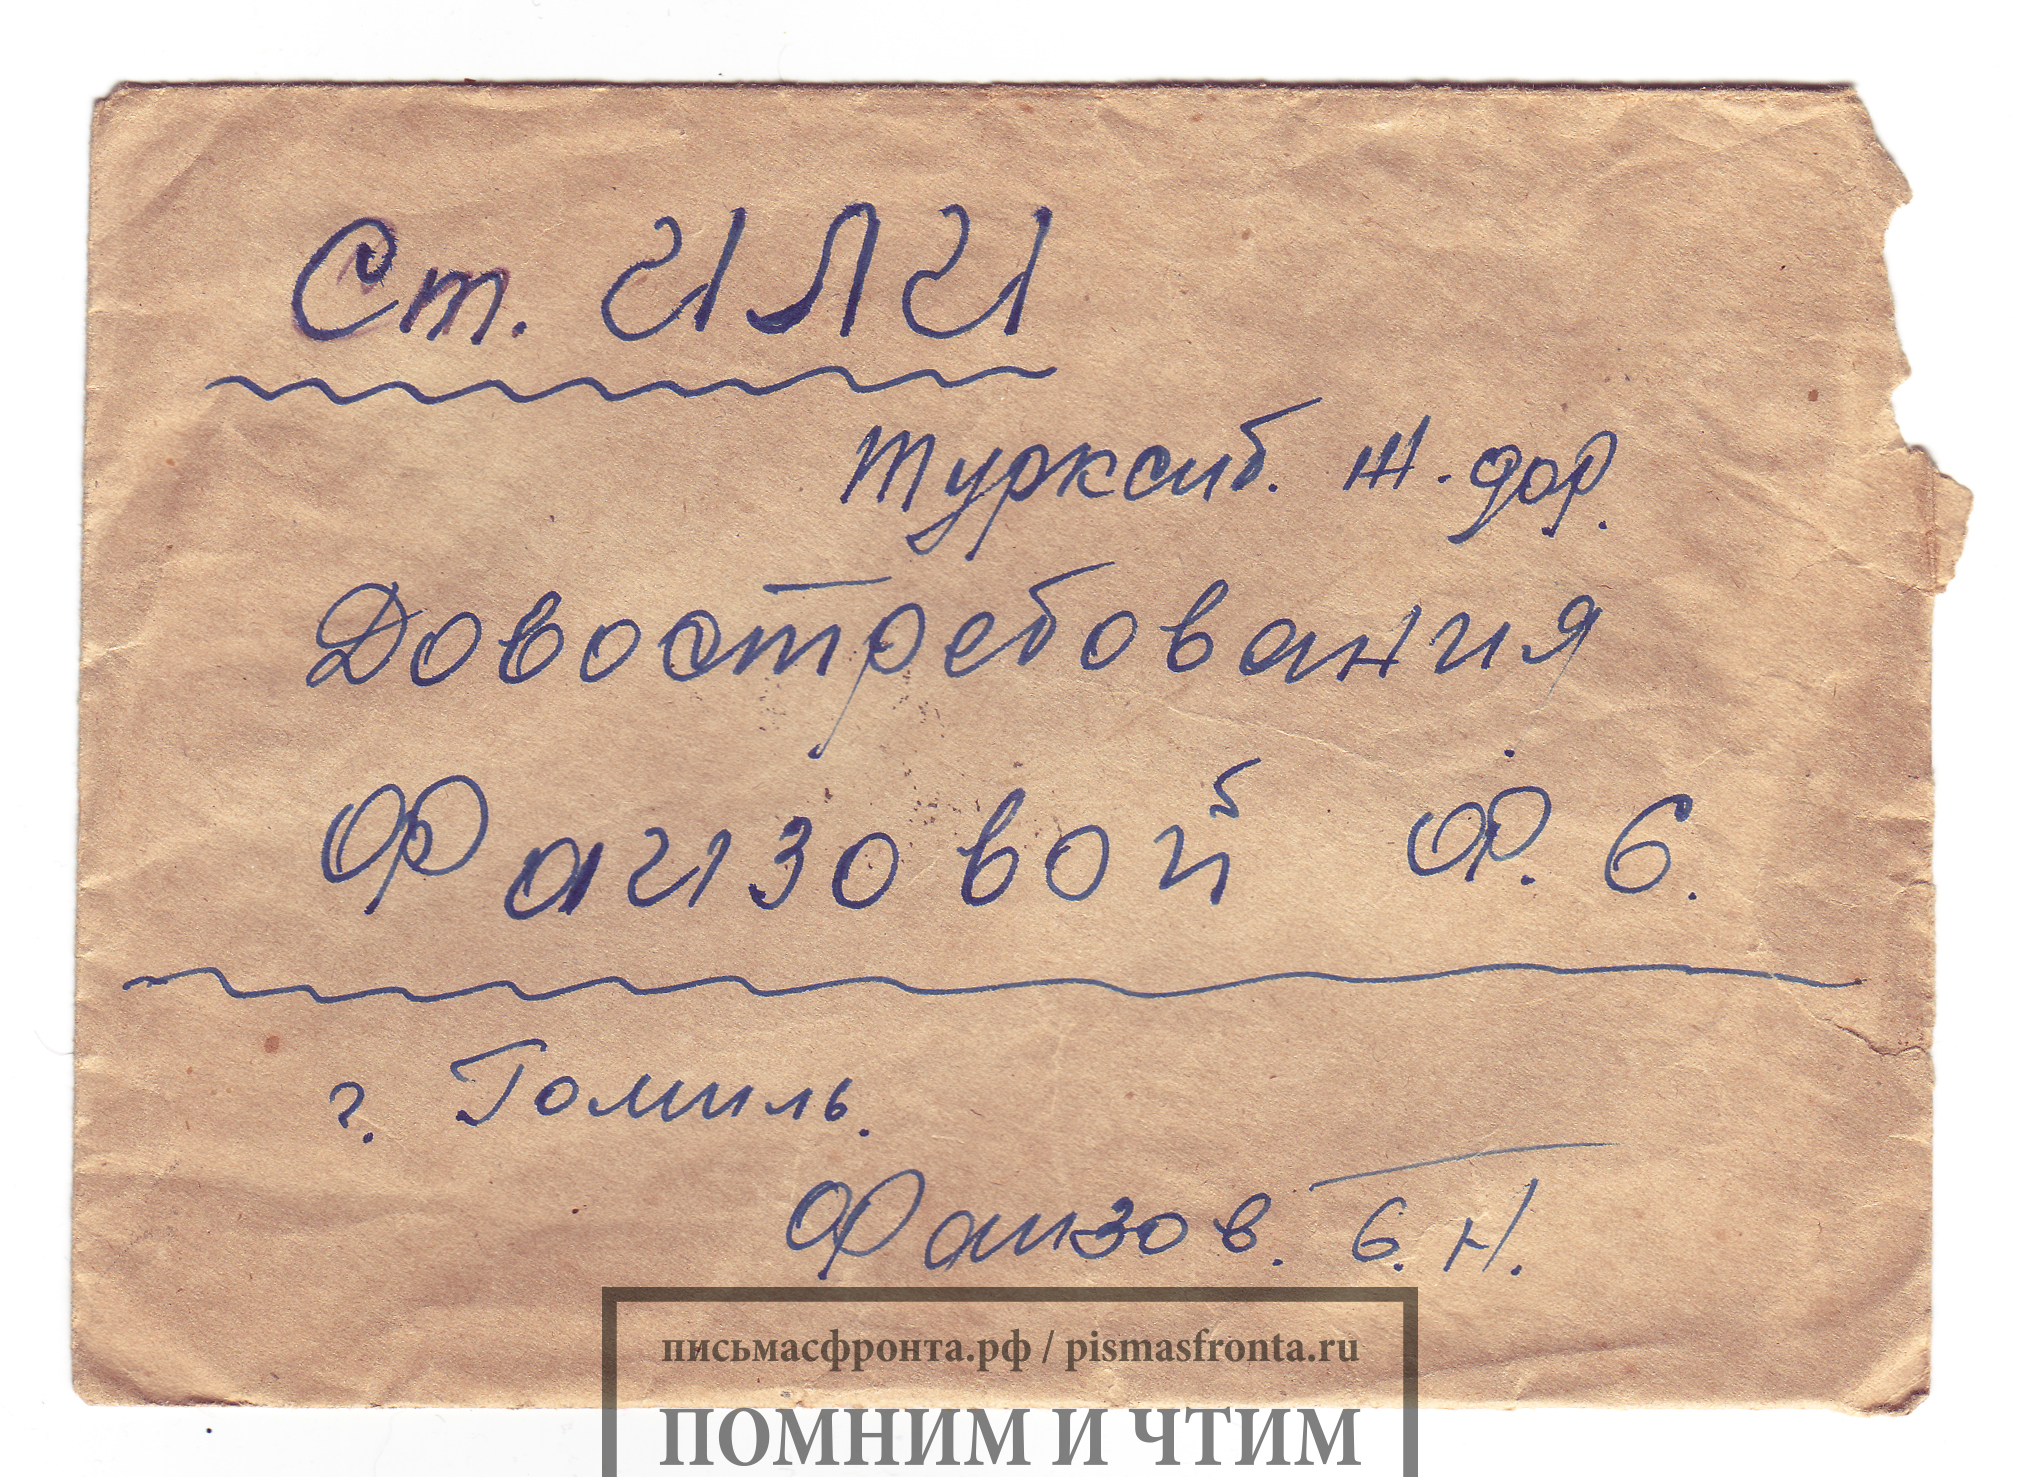 Ст. ИЛИ
Турксиб. ж. дор.
Довостребования
Фаизовой Ф. Б.
г. Гомиль.
Фаизов. Б. Н.
письмасфронта.рф / pismasfronta.ru
ПОМНИМ И ЧТИМ